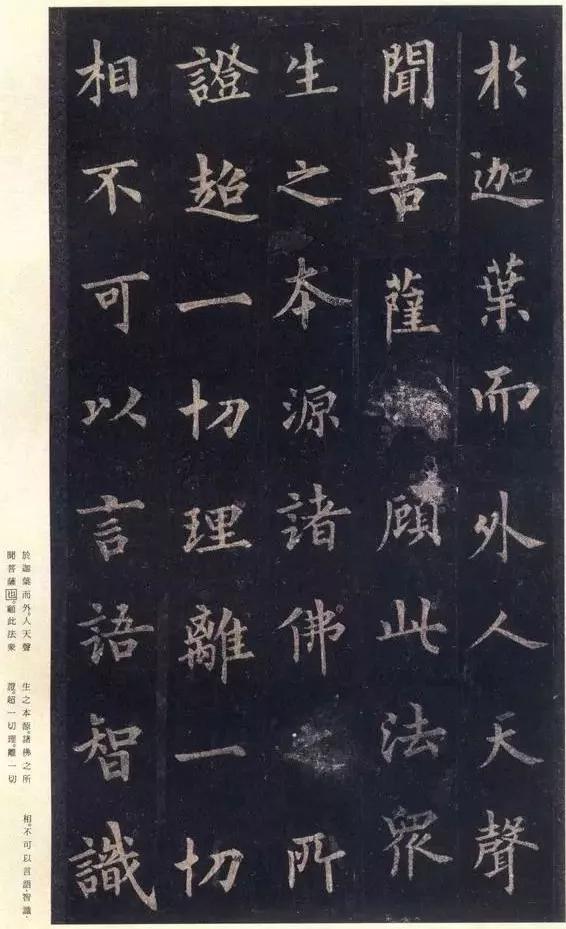 於迦葉而外人天聲
聞菩薩顧此法眾
生之本源諸佛所
證超一切理離一切
相不可以言語智識
於迦葉而外。人天聲
聞菩薩也。顧此法衆
生之本源。諸佛之所
證。超一切理。離一切
相。不可以言語·智識·